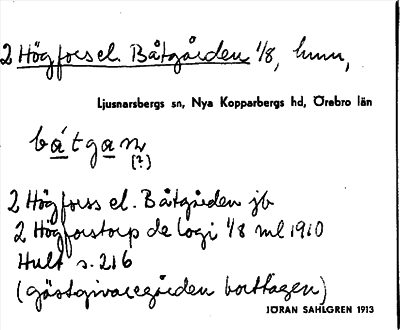 2 Högfors el. Båtgården 1/8, hmn,
Ljusnarsbergs sn, Nya Kopparbergs hd, Örebro län
bátgan
(?)
2 Högforss el. Båtgården jb
2 Högforstorp de logi 1/8 ml 1910
Hult s. 216
(gästgivaregården borttagen)
JÖRAN SAHLGREN 1913